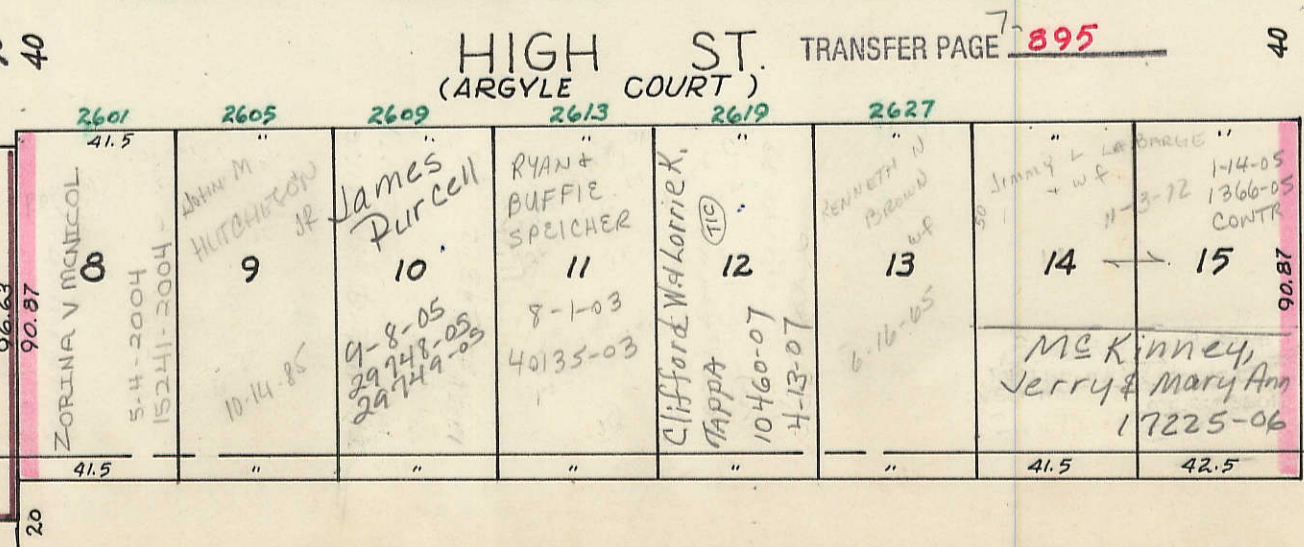 40
HIGH ST.
(ARGYLE COURT)
TRANSFER PAGE 7-895
40
2601
2605
2609
2613
2619
2627
41.5
"
"
"
"
"
"
"
96.63
90.87
ZORINA V MCNICOL
8
5-4-2004
15241-2004-
JOHN M
HUTCHESON
JR
9
10-14-85
James
Purcell
10
9-8-05
29748-05
29749-05
RYAN &
BUFFIE
SPEICHER
11
8-1-03
40135-03
Clifford W & Lorrie K.
TAPPA
TIC
12
10460-07
4-13-07
KENNETH N
BROWN
wf
13
6-16-65
Jimmy L LABARGE
+ wf
11-3-72
50
14
1-14-05
1366-05
CONTR
15
90.87
McKinney,
Jerry & Mary Ann
17225-06
41.5
"
"
"
"
"
41.5
42.5
20